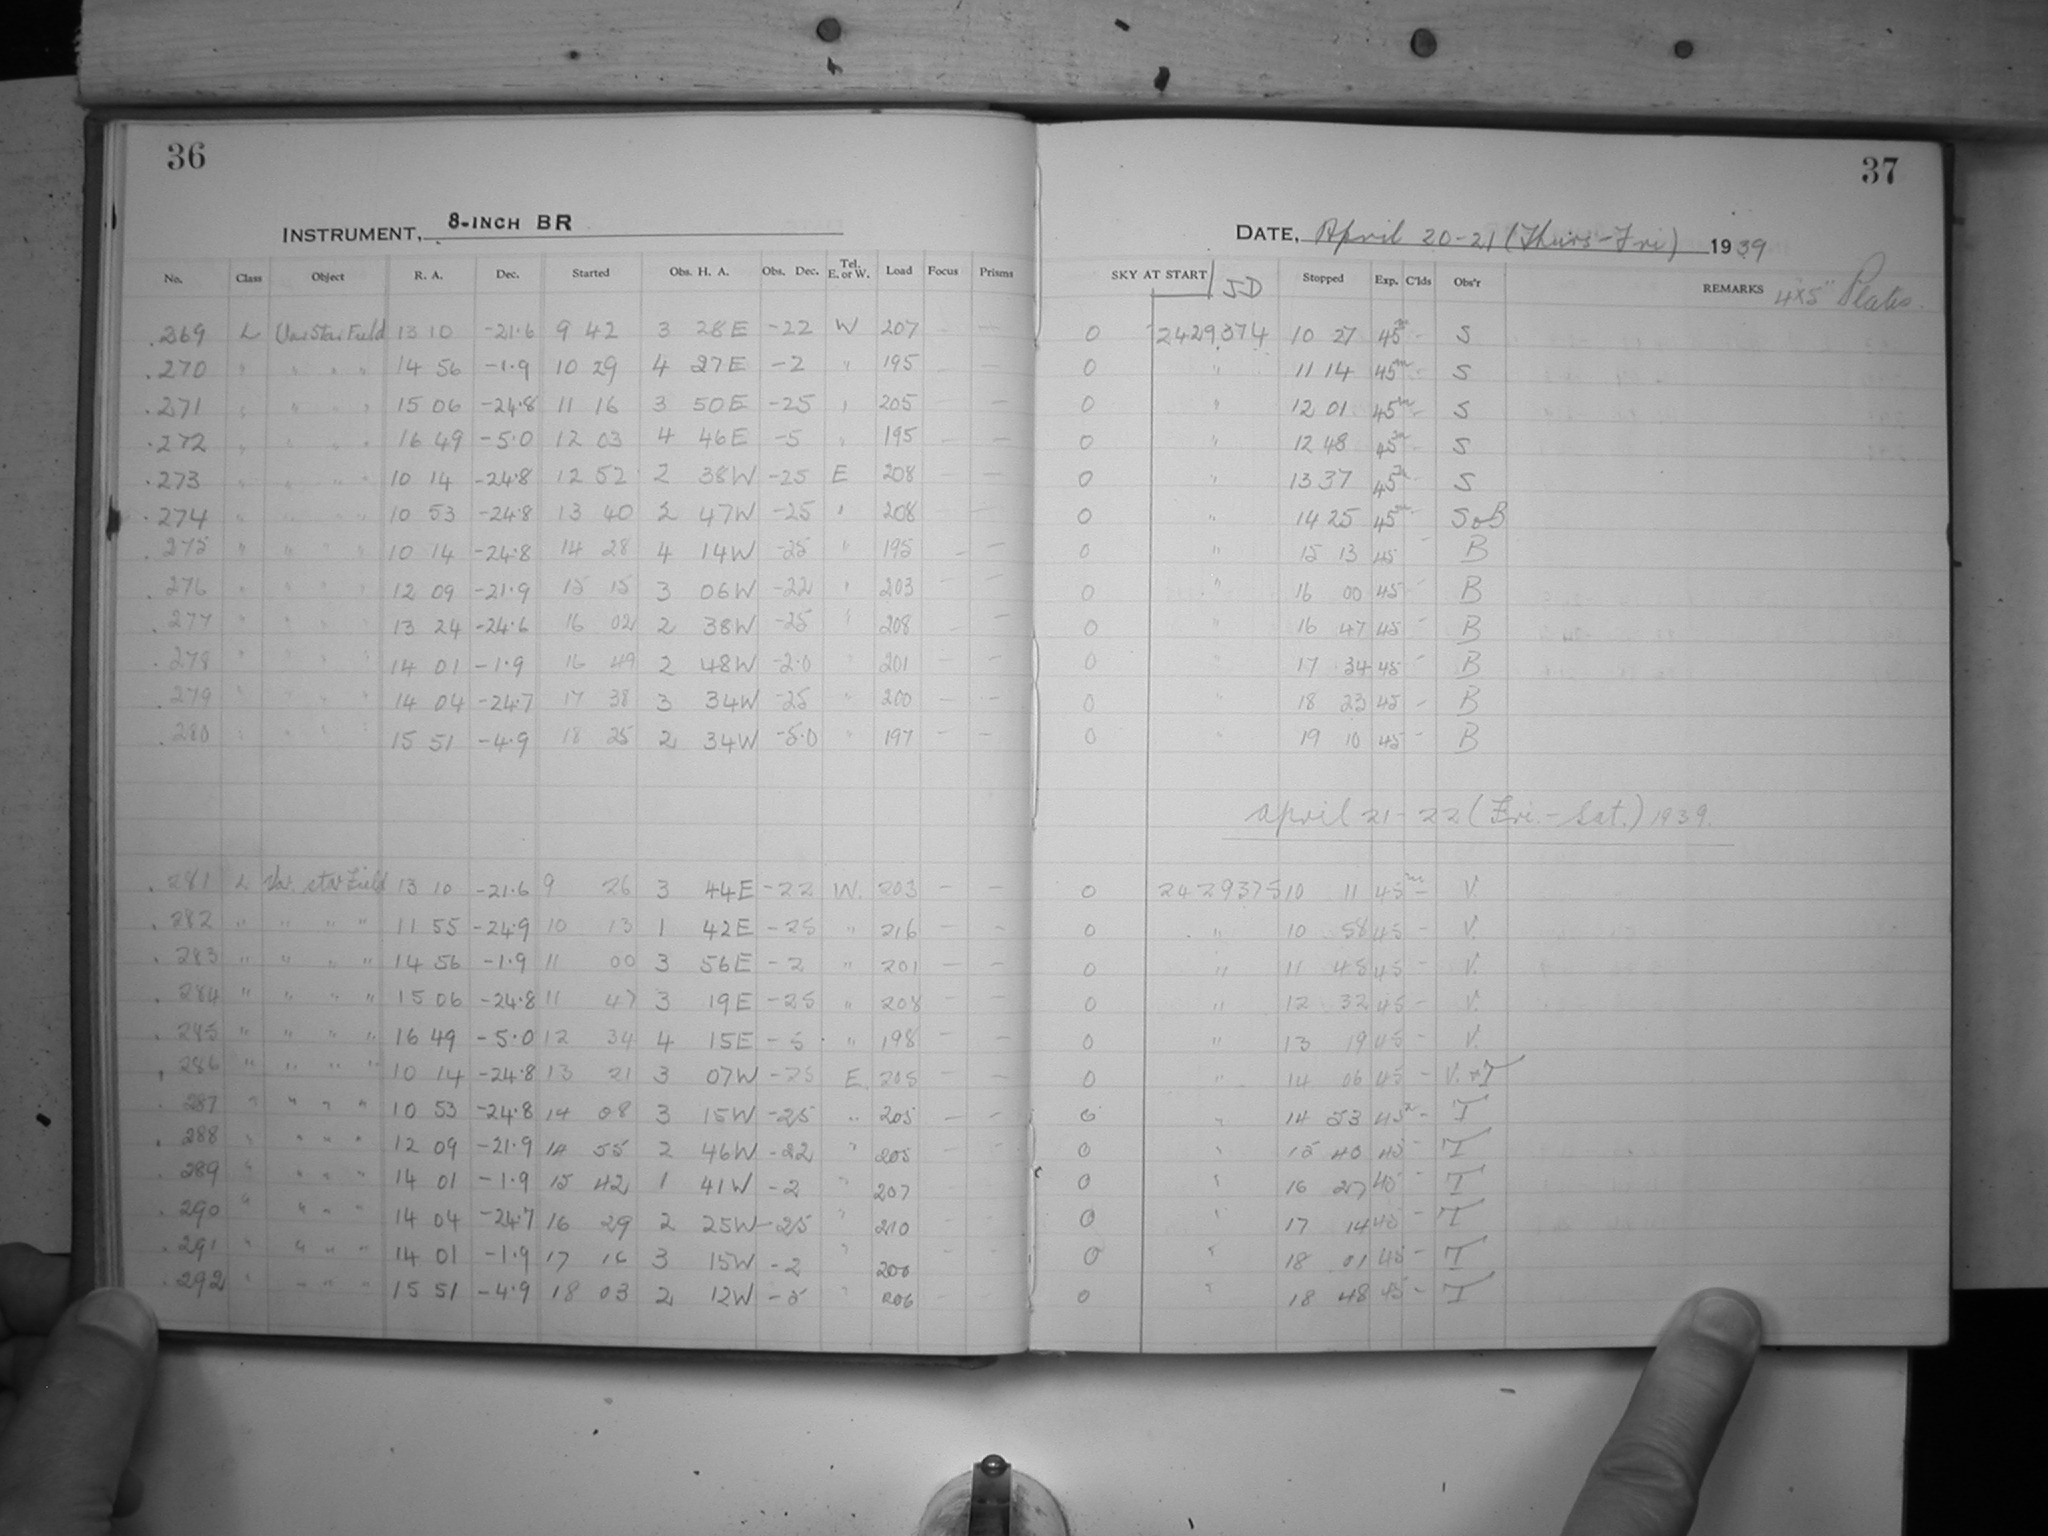 36
INSTRUMENT, 8-INCH BR
No. Class Object R. A. Dec. Started Obs. H. A. Obs. Dec. Tel. E. or W. Load Focus Prisms
.269 L Var Star Field 13 10 -21.6 9 42 3 28E -22 W 207 — —
.270 " " " " 14 56 -1.9 10 29 4 27E -2 " 195 — —
.271 " " " " 15 06 -24.8 11 16 3 50E -25 " 205 — —
.272 " " " " 16 49 -5.0 12 03 4 46E -5 " 195 — —
.273 " " " " 10 14 -24.8 12 52 2 38W -25 E 208 — —
.274 " " " " 10 53 -24.8 13 40 2 47W -25 " 208 — —
.275 " " " " 10 14 -24.8 14 28 4 14W -25 " 195 — —
.276 " " " " 12 09 -21.9 15 15 3 06W -22 " 203 — —
.277 " " " " 13 24 -24.6 16 02 2 38W -25 " 208 — —
.278 " " " " 14 01 -1.9 16 49 2 48W -2.0 " 201 — —
.279 " " " " 14 04 -24.7 17 38 3 34W -25 " 200 — —
.280 " " " " 15 51 -4.9 18 25 2 34W -5.0 " 197 — —
.281 L Var. star Field 13 10 -21.6 9 26 3 44E -22 W. 203 — —
.282 " " " " 11 55 -24.9 10 13 1 42E -25 " 216 — —
.283 " " " " 14 56 -1.9 11 00 3 56E -2 " 201 — —
.284 " " " " 15 06 -24.8 11 47 3 19E -25 " 208 — —
.285 " " " " 16 49 -5.0 12 34 4 15E -5 " 198 — —
.286 " " " " 10 14 -24.8 13 21 3 07W -25 E. 205 — —
.287 " " " " 10 53 -24.8 14 08 3 15W -25 " 205 — —
.288 " " " " 12 09 -21.9 14 55 2 46W -22 " 205 — —
.289 " " " " 14 01 -1.9 15 42 1 41W -2 " 207 — —
.290 " " " " 14 04 -24.7 16 29 2 25W -25 " 210 — —
.291 " " " " 14 01 -1.9 17 16 3 15W -2 " 200 — —
.292 " " " " 15 51 -4.9 18 03 2 12W -5 " 206 — —
37
DATE, April 20-21 (Thurs-Fri) 1939
SKY AT START / JD Stopped Exp. C'lds Obs'r REMARKS 4x5" Plates.
0 2429374 10 27 45m — S
0 " 11 14 45m — S
0 " 12 01 45m — S
0 " 12 48 45m — S
0 " 13 37 45m — S
0 " 14 25 45m — S & B
0 " 15 13 45 — B
0 " 16 00 45 — B
0 " 16 47 45 — B
0 " 17 34 45 — B
0 " 18 23 45 — B
0 " 19 10 45 — B
April 21-22 (Fri.-Sat.) 1939.
0 2429375 10 11 45m — V.
0 " 10 58 45 — V.
0 " 11 45 45 — V.
0 " 12 32 45 — V.
0 " 13 19 45 — V.
0 " 14 06 45 — V. + T
0 " 14 53 45m — T
0 " 15 40 45 — T
0 " 16 27 45 — T
0 " 17 14 45 — T
0 " 18 01 45 — T
0 " 18 48 45 — T